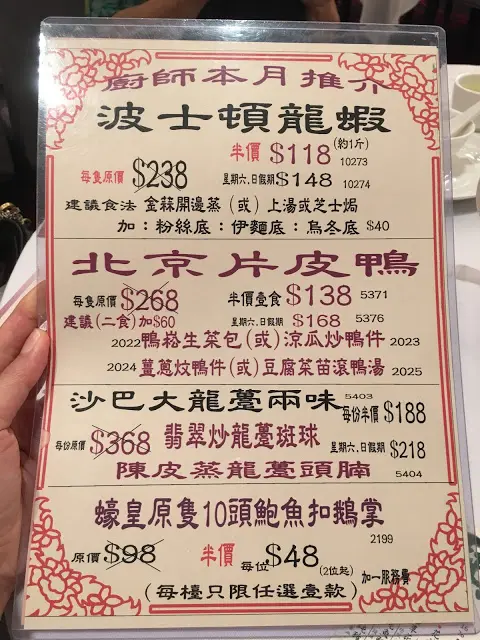 廚師本月推介
波士頓龍蝦
半價 $118 (約1斤) 10273
每隻原價 $238 星期六.日假期 $148 10274
建議食法 金蒜開邊蒸(或)上湯或芝士焗
加:粉絲底:伊麵底:烏冬底 $40
北京片皮鴨
每隻原價 $268 半價壹食 $138 5371
建議(二食)加$60 星期六.日假期 $168 5376
2022 鴨崧生菜包(或)涼瓜炒鴨件 2023
2024 薑蔥炆鴨件(或)豆腐菜苗滾鴨湯 2025
沙巴大龍躉兩味 5403 每份半價 $188
每份原價 $368 翡翠炒龍躉斑球 星期六.日假期 $218
陳皮蒸龍躉頭腩 5404
蠔皇原隻10頭鮑魚扣鵝掌
2199
原價 $98 半價 每位 $48 (2位起) 加一服務費
(每檯只限任選壹款)